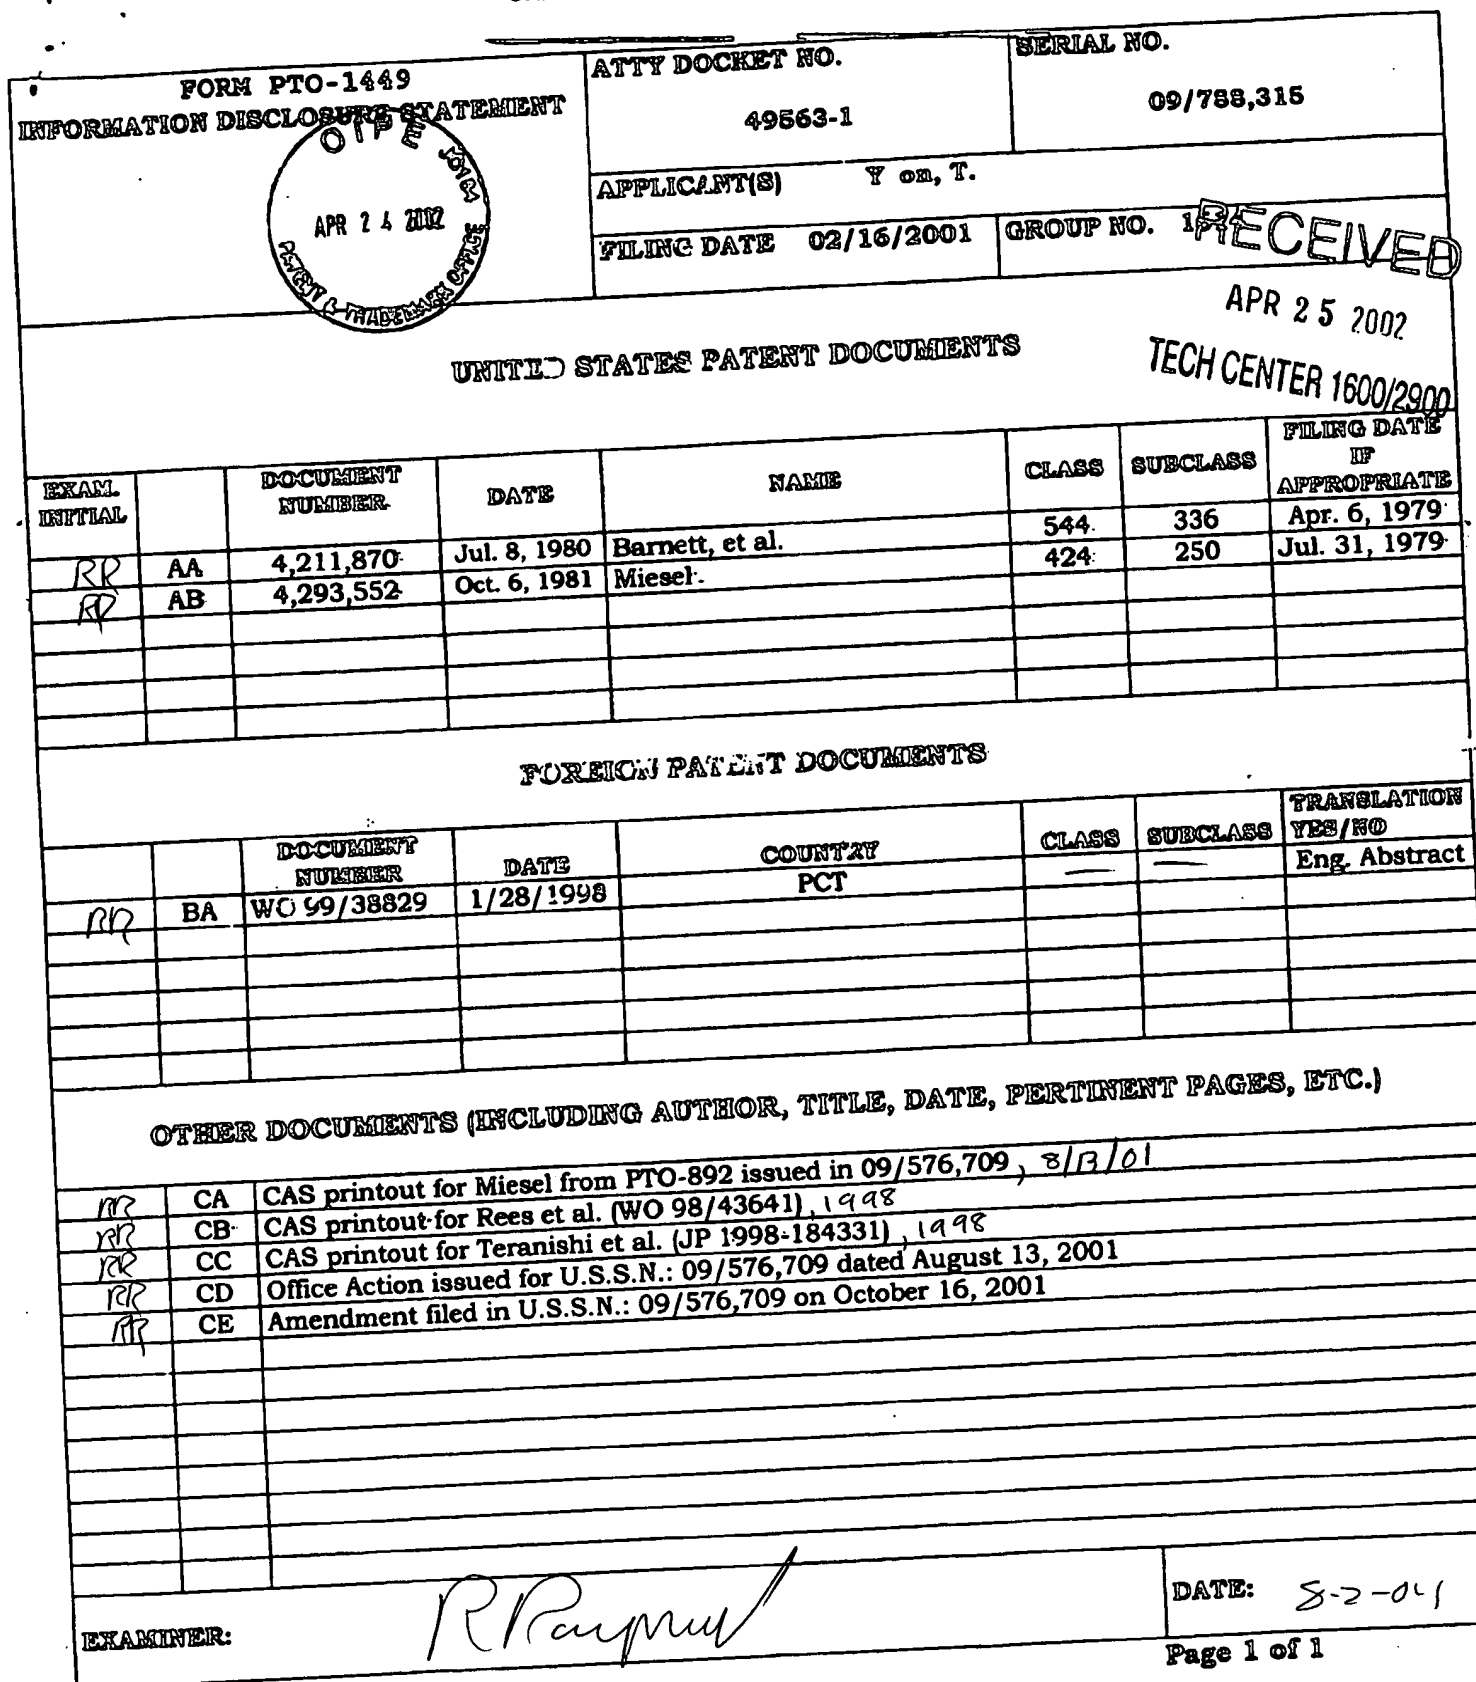 FORM PTO-1449
INFORMATION DISCLOSURE STATEMENT
ATTY DOCKET NO.
49563-1
SERIAL NO.
09/788,315
APPLICANT(S) Y on, T.
FILING DATE 02/16/2001
GROUP NO.
OIPE
APR 24 2002
PATENT & TRADEMARK OFFICE
RECEIVED
APR 25 2002
TECH CENTER 1600/2900
UNITED STATES PATENT DOCUMENTS
EXAM. INITIAL DOCUMENT NUMBER DATE NAME CLASS SUBCLASS FILING DATE IF APPROPRIATE
RR AA 4,211,870 Jul. 8, 1980 Barnett, et al. 544 336 Apr. 6, 1979
RR AB 4,293,552 Oct. 6, 1981 Miesel 424 250 Jul. 31, 1979
FOREIGN PATENT DOCUMENTS
DOCUMENT NUMBER DATE COUNTRY CLASS SUBCLASS TRANSLATION YES/NO
RR BA WO 99/38829 1/28/1998 PCT — — Eng. Abstract
OTHER DOCUMENTS (INCLUDING AUTHOR, TITLE, DATE, PERTINENT PAGES, ETC.)
RR CA CAS printout for Miesel from PTO-892 issued in 09/576,709, 8/13/01
RR CB CAS printout for Rees et al. (WO 98/43641), 1998
RR CC CAS printout for Teranishi et al. (JP 1998-184331), 1998
RR CD Office Action issued for U.S.S.N.: 09/576,709 dated August 13, 2001
RR CE Amendment filed in U.S.S.N.: 09/576,709 on October 16, 2001
EXAMINER:
DATE: 8-2-04
Page 1 of 1